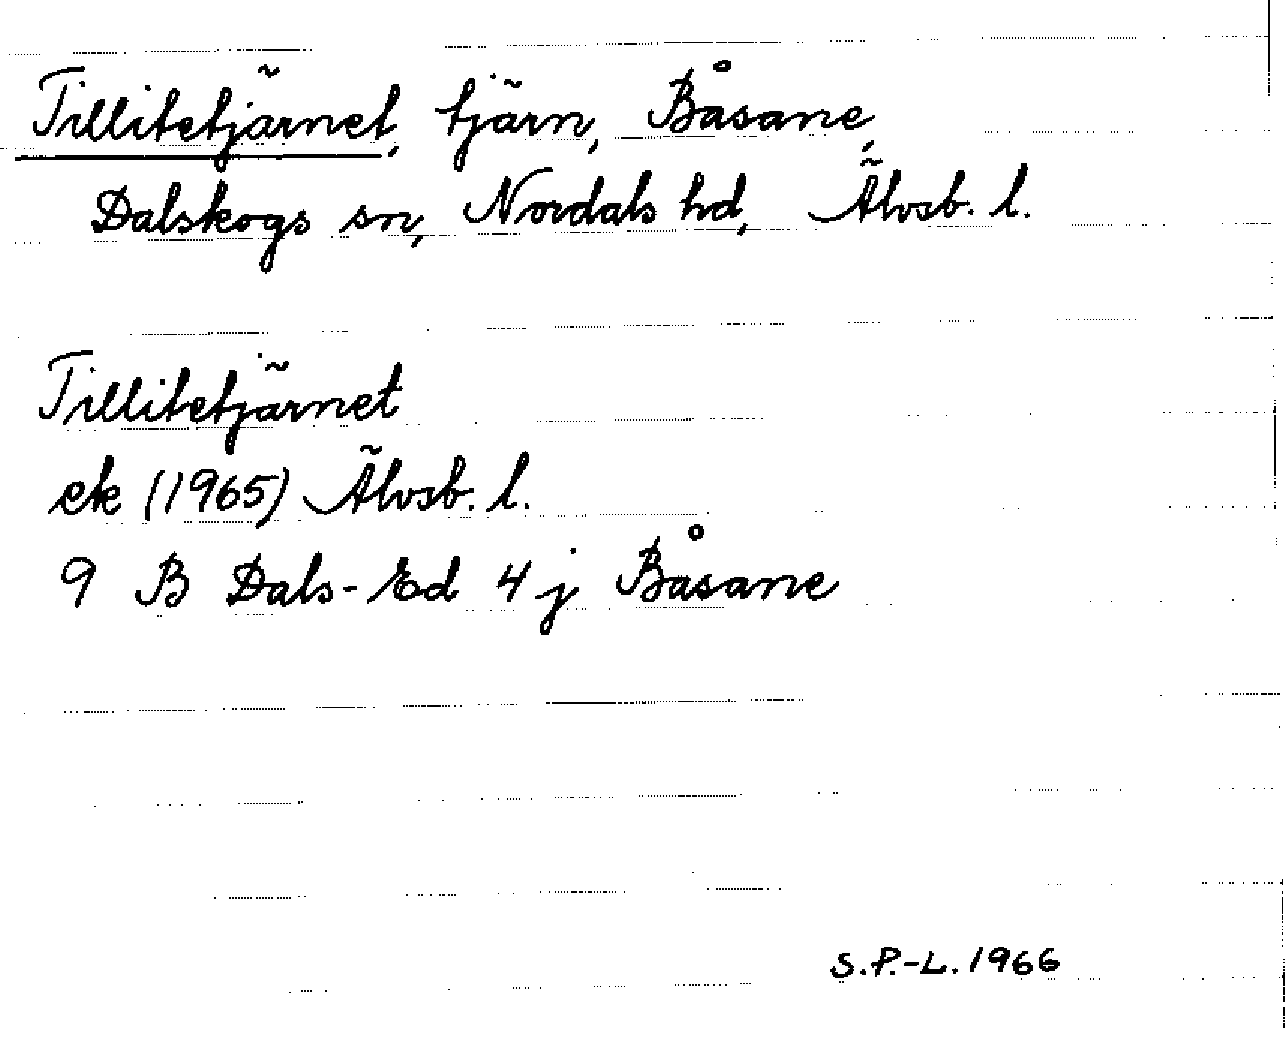 Tillitetjärnet, tjärn, Båsane,
Dalskogs sn, Nordals hd, Älvsb. l.
Tillitetjärnet
ek (1965) Älvsb. l.
9 B Dals-Ed 4 j Båsane
S.P.-L. 1966